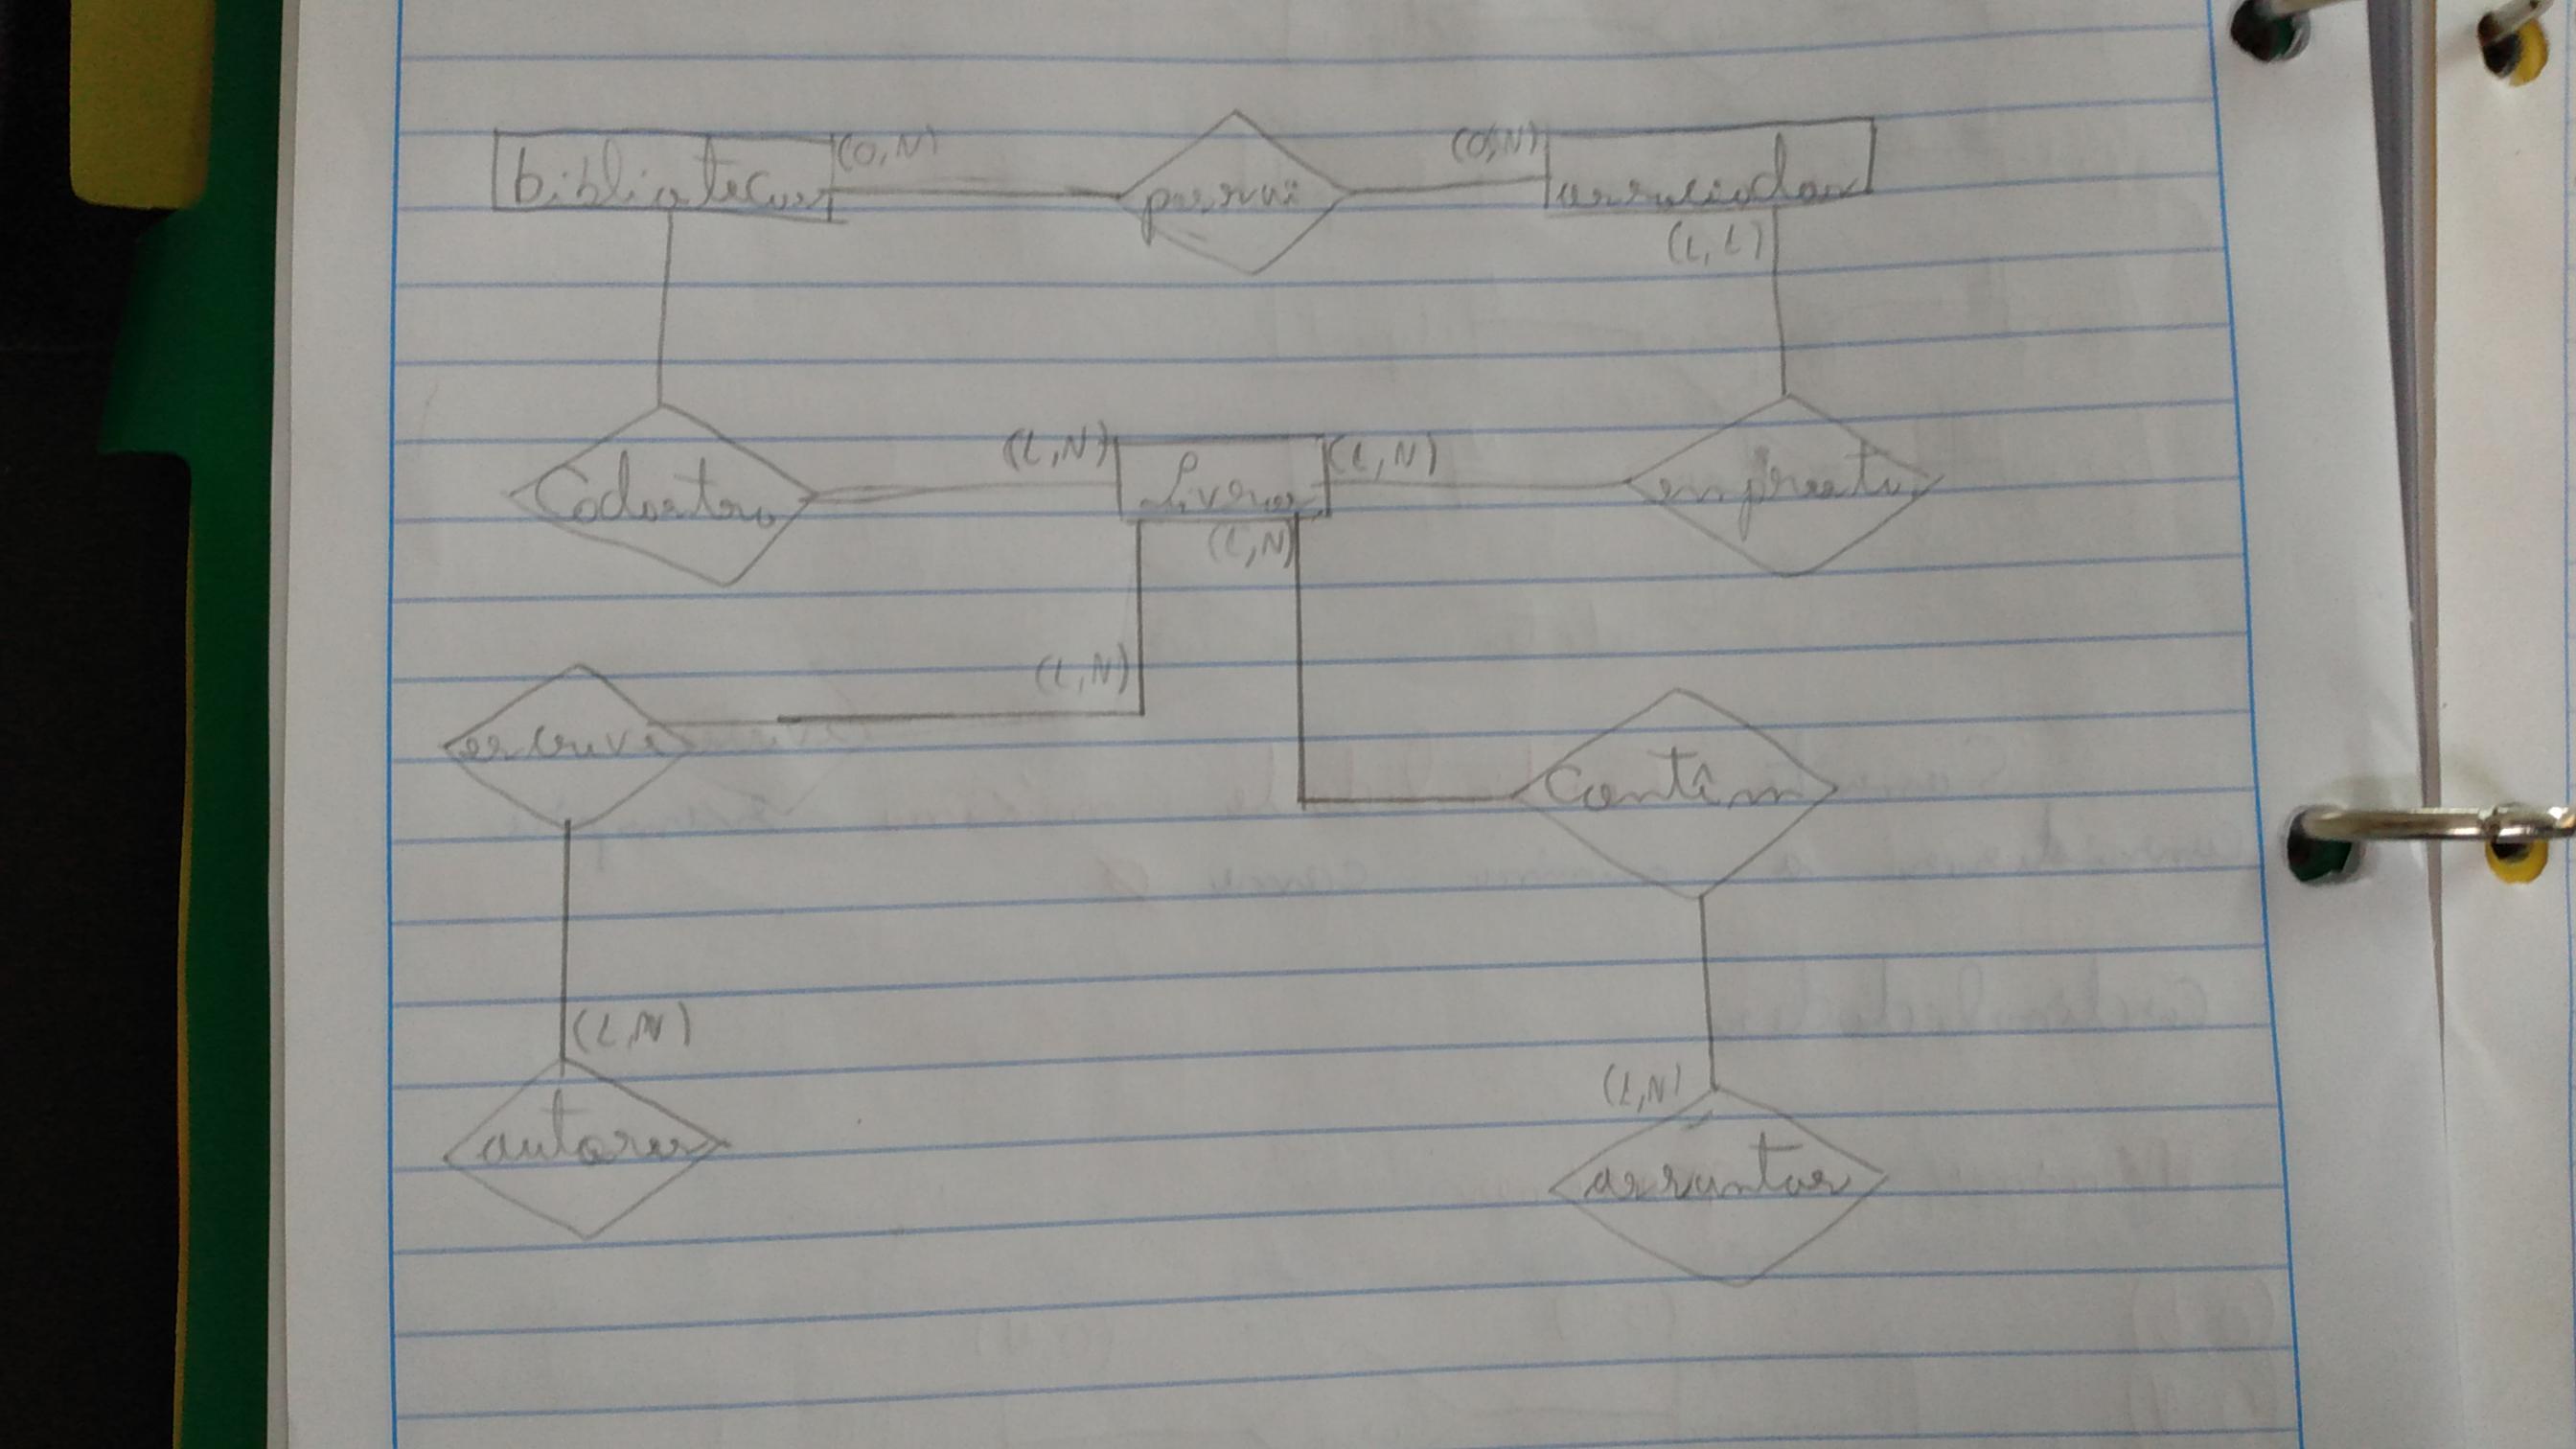 bibliotecas (0,N) possui (0,N) associados
(1,1)
Cadastro (1,N) Livros (1,N) emprestu
(1,N)
(1,N)
escreve Contêm
(1,N)
(1,N)
autores assuntos